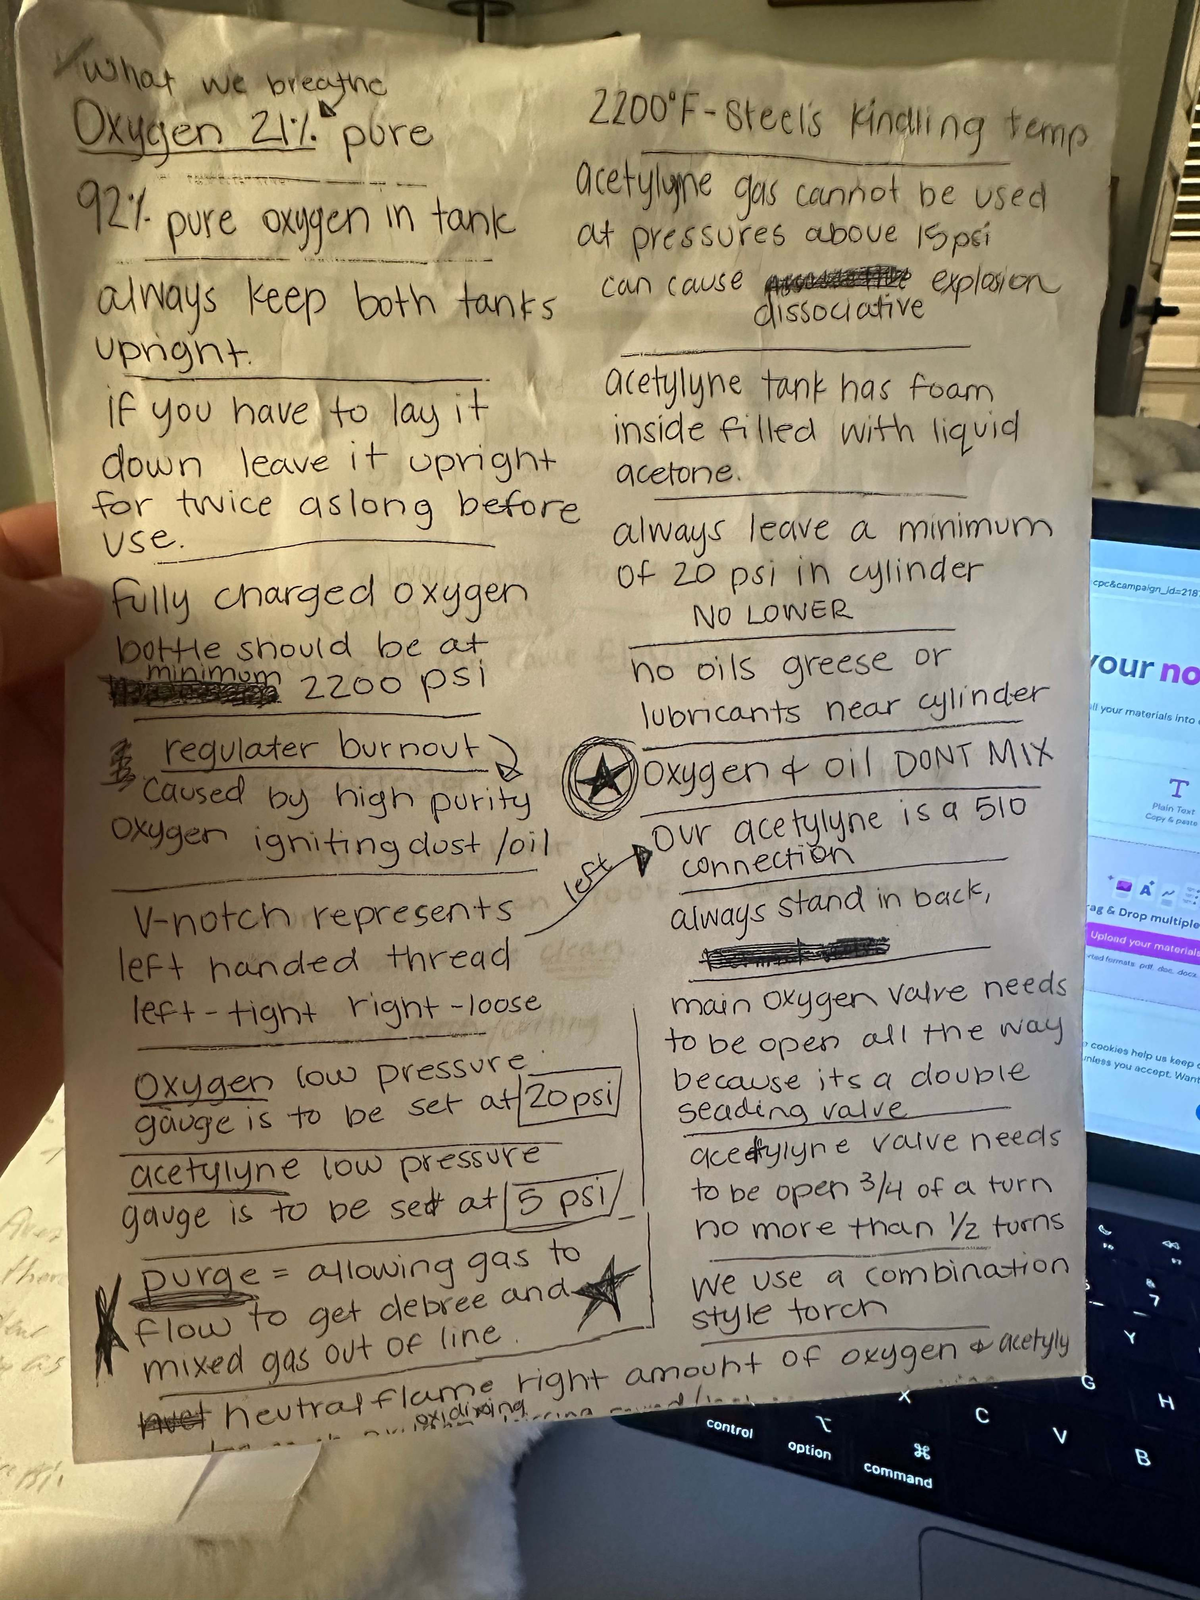 what we breathe
Oxygen 21% pure
92% pure oxygen in tank
always keep both tanks
upright.
if you have to lay it
down leave it upright
for twice aslong before
use.
fully charged oxygen
bottle should be at
minimum 2200 psi
regulater burnout
caused by high purity
oxygen igniting dust/oil
V-notch represents
left handed thread
left-tight right-loose
left
Oxygen low pressure
gauge is to be set at 20psi
acetylyne low pressure
gauge is to be set at 5 psi
purge = allowing gas to
flow to get debree and
mixed gas out of line.
neutral flame right amount of oxygen & acetyly
oxidixing
2200°F - Steel's kindling temp
acetylyne gas cannot be used
at pressures above 15psi
can cause explosion
dissociative
acetylyne tank has foam
inside filled with liquid
acetone.
always leave a minimum
of 20 psi in cylinder
NO LOWER
no oils greese or
lubricants near cylinder
Oxygen & oil DONT MIX
our acetylyne is a 510
connection
always stand in back,
main oxygen valve needs
to be open all the way
because its a double
seading valve
acetylyne valve needs
to be open 3/4 of a turn
no more than 1/2 turns
we use a combination
style torch
cpc&campaign_id=218
your no
ll your materials into
T
Plain Text
Copy & paste
ag & Drop multiple
Upload your materials
rted formats: pdf, doc, docx
cookies help us keep
unless you accept. Want
7
Y
G
H
X
C
V
B
control
option
command